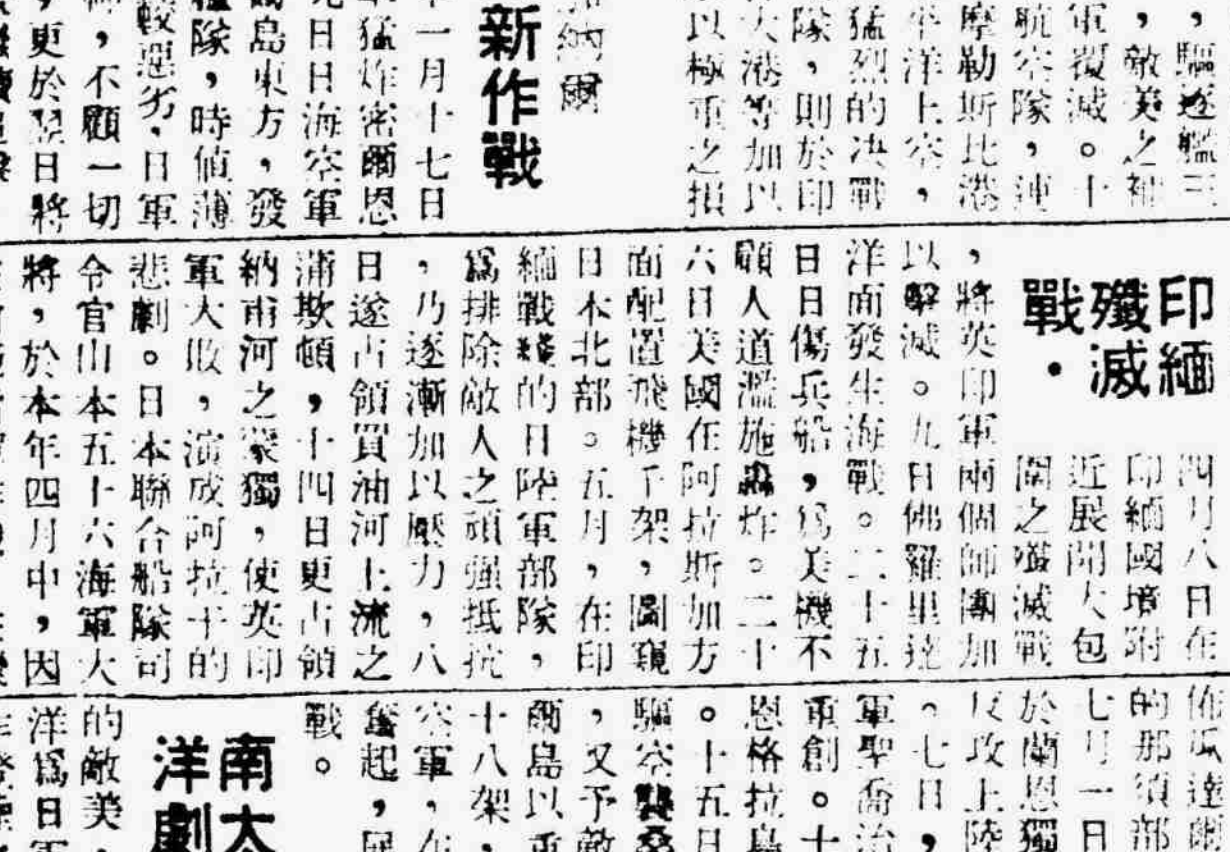 ，驅逐艦三
，敵美之袖
軍覆滅。十
航空隊，連
摩勒斯比港
平洋上空，
猛烈的决戰
隊，則於印
大港等加以
以極重之損
納爾
新作戰
一月十七日
猛炸密爾恩
日日海空軍
島東方，發
隊，時値薄
較惡劣，日軍
，不顧一切
，更於翌日將
印緬
殲滅
戰・
四月八日在
印緬國境附
近展開大包
圍之殲滅戰
，將英印軍兩個師團加
以擊滅。九日佛羅里達
洋面發生海戰。二十五
日日傷兵船，爲美機不
顧人道濫施轟炸。二十
六日美國在阿拉斯加方
面配置飛機千架，圖窺
日本北部。五月，在印
緬戰綫的日陸軍部隊，
爲排除敵人之頑强抵抗
，乃逐漸加以壓力，八
日遂占領買油河上流之
蒲欺頓，十四日更占領
納甫河之蒙獨，使英印
軍大敗，演成阿拉干的
悲劇。日本聯合船隊司
令官山本五十六海軍大
將，於本年四月中，因
瓜達爾
的那須部
七月一日
於蘭恩獨
反攻上陸
。七日，
軍聖喬治
重創。十
恩格拉島
。十五日
驅空襲桑
，又予敵
爾島以重
十八架，
空軍，在
奮起，展
戰。
南太
洋劇
的敵美，
洋爲日軍